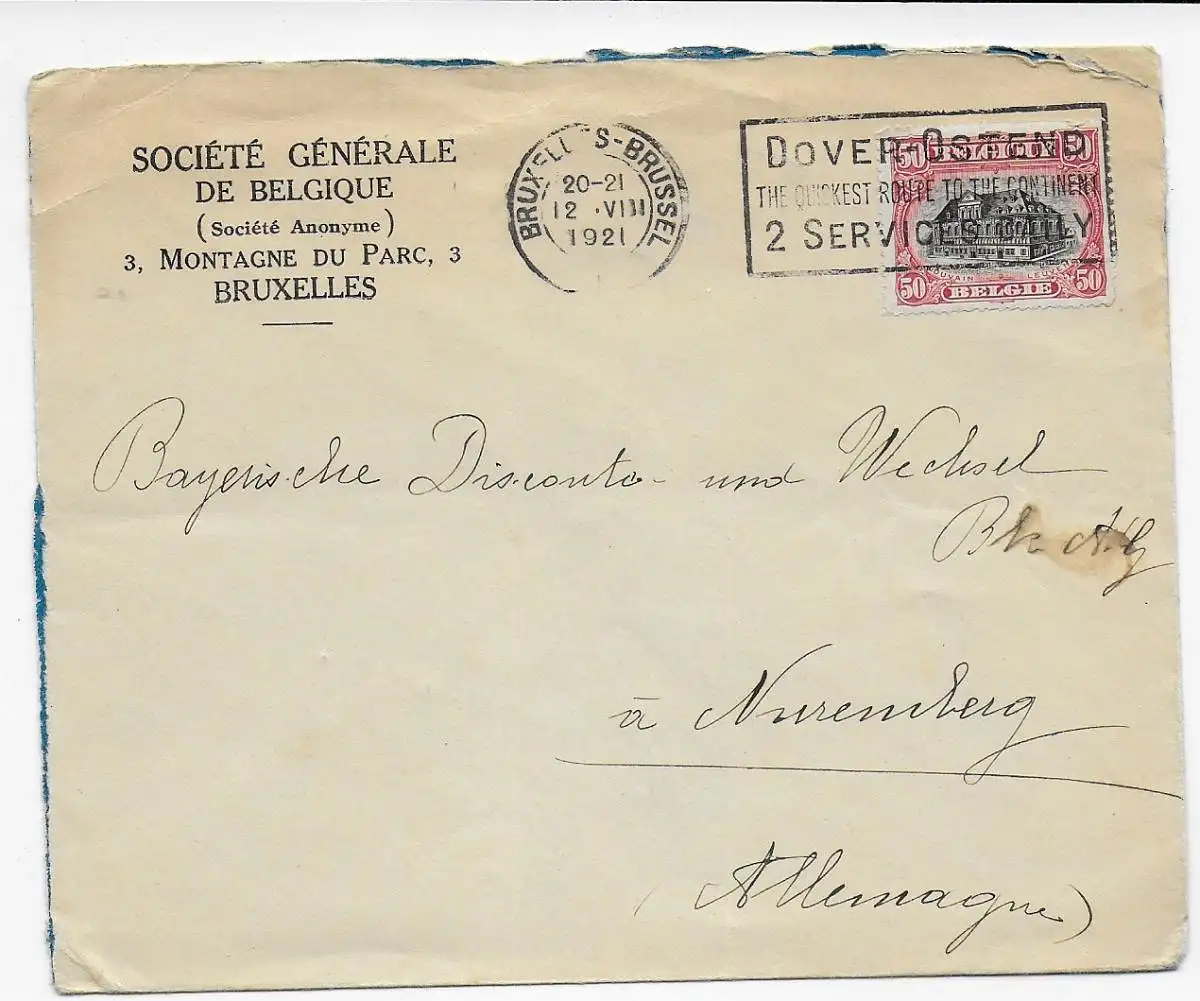 SOCIÉTÉ GÉNÉRALE
DE BELGIQUE
(Société Anonyme)
3, MONTAGNE DU PARC, 3
BRUXELLES
BRUXELLES-BRUSSEL
20-21
12 VIII
1921
DOVER-OSTEND
THE QUICKEST ROUTE TO THE CONTINENT
2 SERVICES DAILY
50 50
LOUVAIN LEUVEN
50 BELGIE 50
Bayerische Disconto- und Wechsel
Bk. A.G
à Nuremberg
(Allemagne)